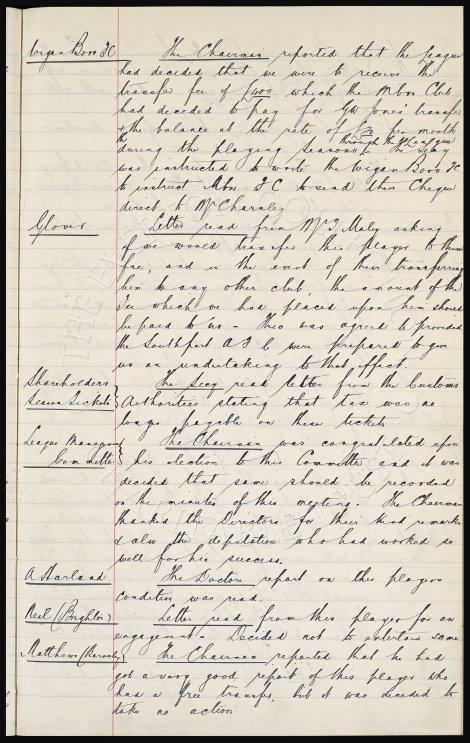 Wigan Boro FC The Chairman reported that the League
had decided that we were to receive the
transfer fee of £400 which the Mbro Club
had decided to pay for GW Jones' transfer
& the balance at the rate of £20 per month
through the League
during the playing season. The Secy
was instructed to write the Wigan Boro FC
to instruct Mbro FC to send their Cheque
direct to Mr Charnley
Glover. Letter read from Mr T. Maley asking
if we would transfer this player to them
free, and in the event of their transferring
him to any other club, the amount of the
fee which we had placed upon him should
be paid to us - This was agreed to provided
the Southport A F C were prepared to give
us an undertaking to that effect.
Shareholders The Secy read letter from the Customs
Season Tickets Authorities stating that tax was no
longer payable on these tickets
League Management The Chairman was congratulated upon
Committee his election to this Committee and it was
decided that same should be recorded
on the minutes of this meeting. The Chairman
thanked the Directors for their kind remarks
& also the deputation who had worked so
well for his success.
A Harland The Doctors report on this players
condition was read.
Neil (Brighton) Letter read from this player for an
engagement - Decided not to entertain same
Matthews (Barnsley) The Chairman reported that he had
got a very good report of this player who
has a free transfer, but it was decided to
take no action